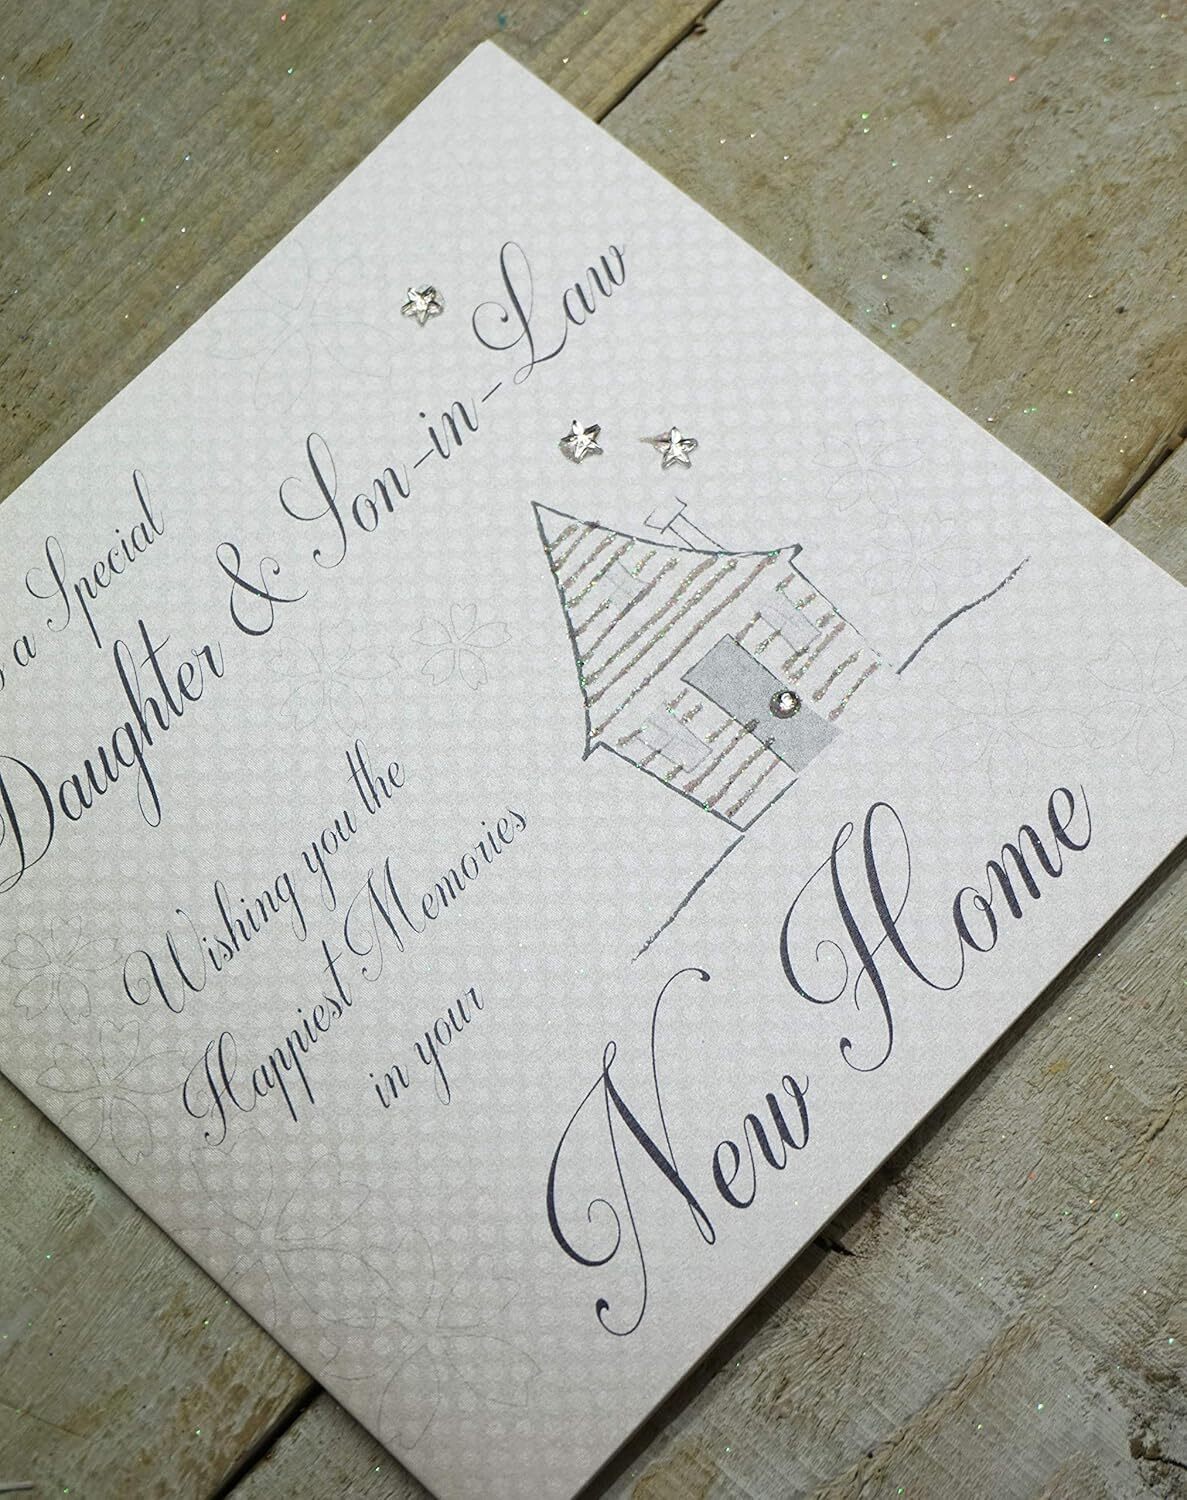 a Special
Daughter & Son-in-Law
Wishing you the
Happiest Memories
in your
New Home